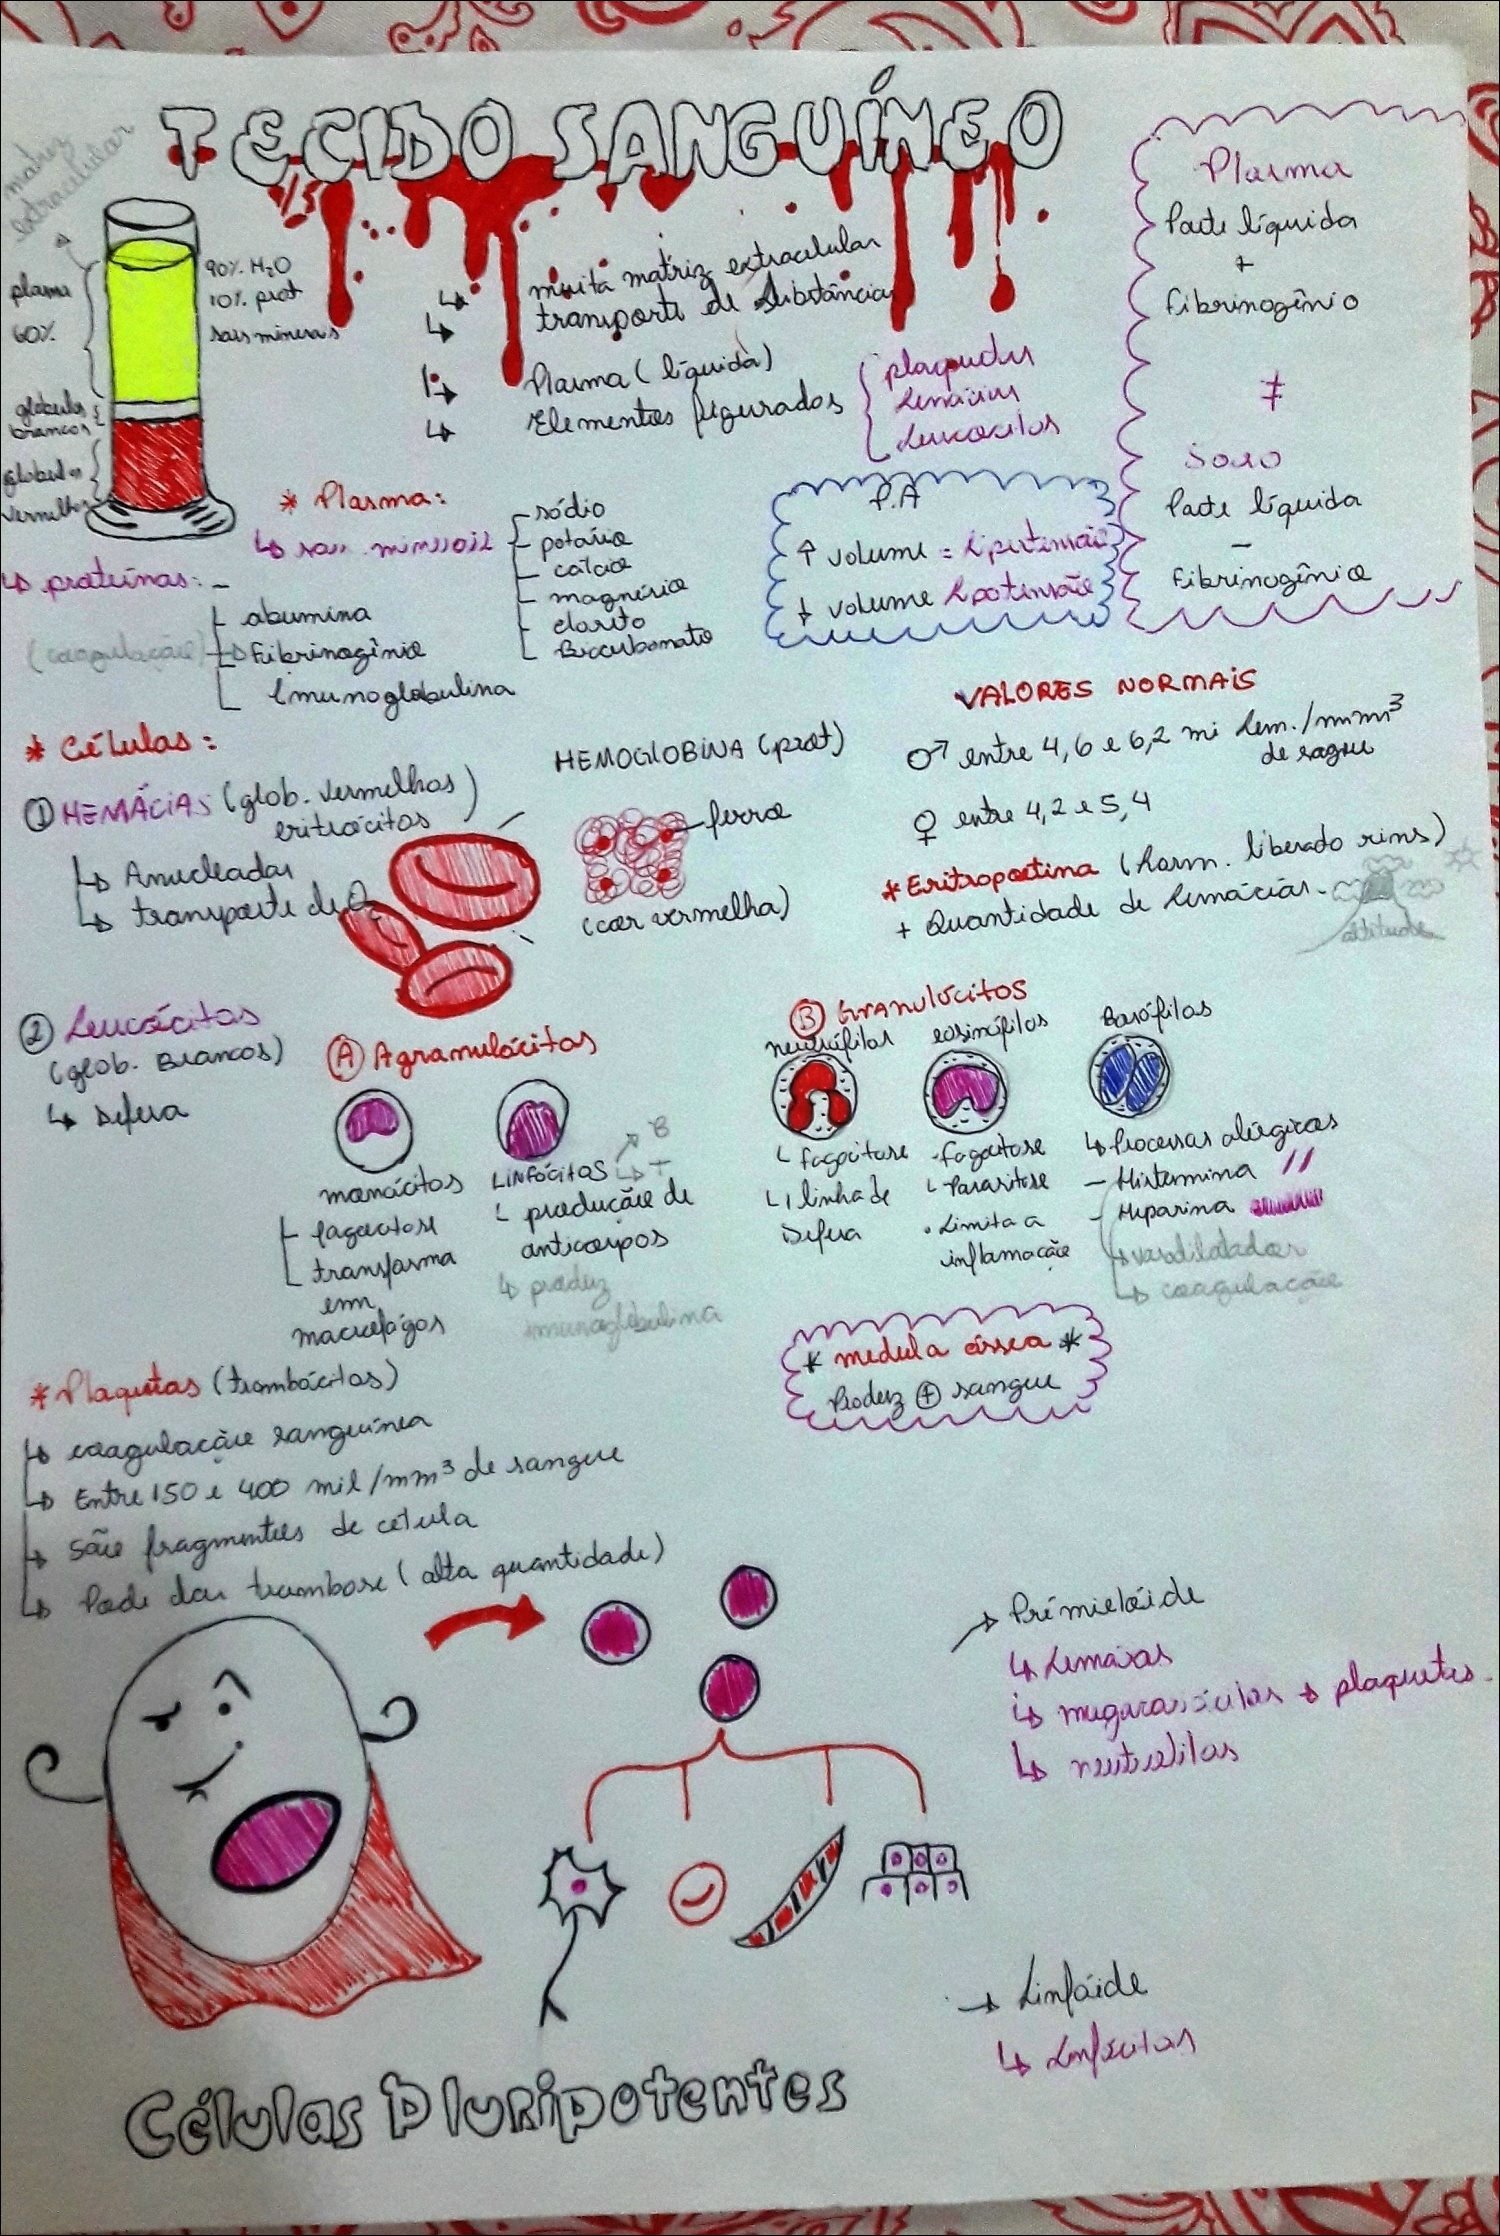 TECIDO SANGUÍNEO
matriz
extracelular
plasma
60%
90% H₂O
10% prot
sais minerais
glóbulos
brancos
glóbulos
vermelhos
↳ muita matriz extracelular
↳ transporte de substâncias
↳ Plasma (líquida)
↳ Elementos figurados
plaquetas
hemácias
Leucócitos
Plasma
Parte líquida
+
fibrinogênio
≠
Soro
Parte líquida
-
Fibrinogênio
* Plasma:
↳ sais minerais
sódio
potássio
cálcio
magnésio
cloreto
Bicarbonato
↳ proteínas:
abumina
(coagulação) → Fibrinogênio
Imunoglobulina
P.A
↑ volume = hipertensão
↓ volume hipotensão
VALORES NORMAIS
♂ entre 4,6 e 6,2 mi hem./mm³
de sangue
♀ entre 4,2 e 5,4
* Eritropoetina (horm. liberado rins)
+ Quantidade de hemácias.
altitude
* Células:
① HEMÁCIAS (glob. vermelhos
eritrócitos)
↳ Anucleadas
↳ transporte de O₂
HEMOGLOBINA (prot)
ferro
(cor vermelha)
② Leucócitos
(glob. Brancos)
↳ Defesa
Ⓐ Agranulócitos
monócitos
fagocitose
transforma
em
macrófagos
LINFÓCITOS
B
T
↳ produção de
anticorpos
↳ produz
imunoglobulina
Ⓑ GRANULÓCITOS
neutrófilos
↳ fagocitose
↳ 1 linha de
Defesa
eosinófilos
- fagocitose
↳ Parasitose
• Limita a
inflamação
Basófilos
↳ Processos alérgicos
- Histermina
- Heparina
↳ vasodilatador
↳ coagulação
* medula óssea *
Produz ⊕ sangue
* Plaquetas (trombócitos)
↳ coagulação sanguínea
↳ Entre 150 e 400 mil/mm³ de sangue
↳ São fragmentos de célula
↳ Pode dar trombose (alta quantidade)
→ Prémielóide
↳ hemácias
↳ megacariócitos → plaquetas.
↳ neutrofilos
→ Linfóide
↳ Linfócitos
Células Pluripotentes